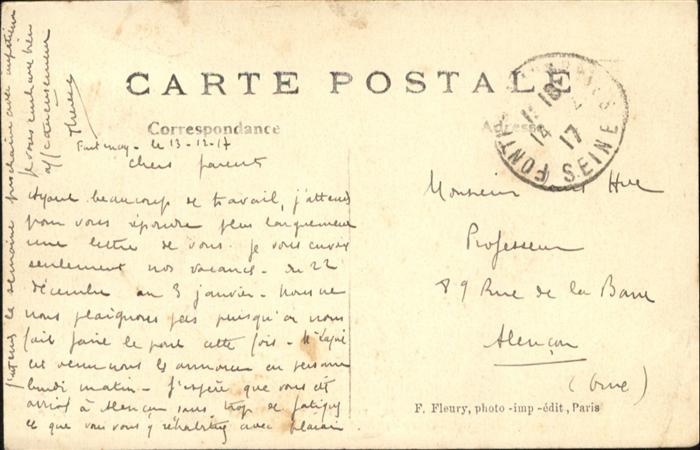 CARTE POSTALE
Correspondance
Adresse
Fontenay - le 13-12-17
Chers parents
Ayant beaucoup de travail, j'attends
pour vous répondre plus longuement
une lettre de vous. Je vous envoie
seulement nos vacances - du 22
décembre au 3 janvier - Nous ne
nous plaignons pas puisqu'on nous
fait faire le pont cette fois -
est venu nous les annoncer en personne
lundi matin - J'espère que vous êtes
arrivés à Alençon sans trop de fatigue
ce que vous vous y réhabituez avec plaisir
J'attends la semaine prochaine avec impatience
Je vous embrasse bien
affectueusement
Monsieur Hue
Professeur
89 Rue de la Barre
Alençon
(Orne)
SEINE
14 - 12
17
F. Fleury, photo-imp-édit, Paris